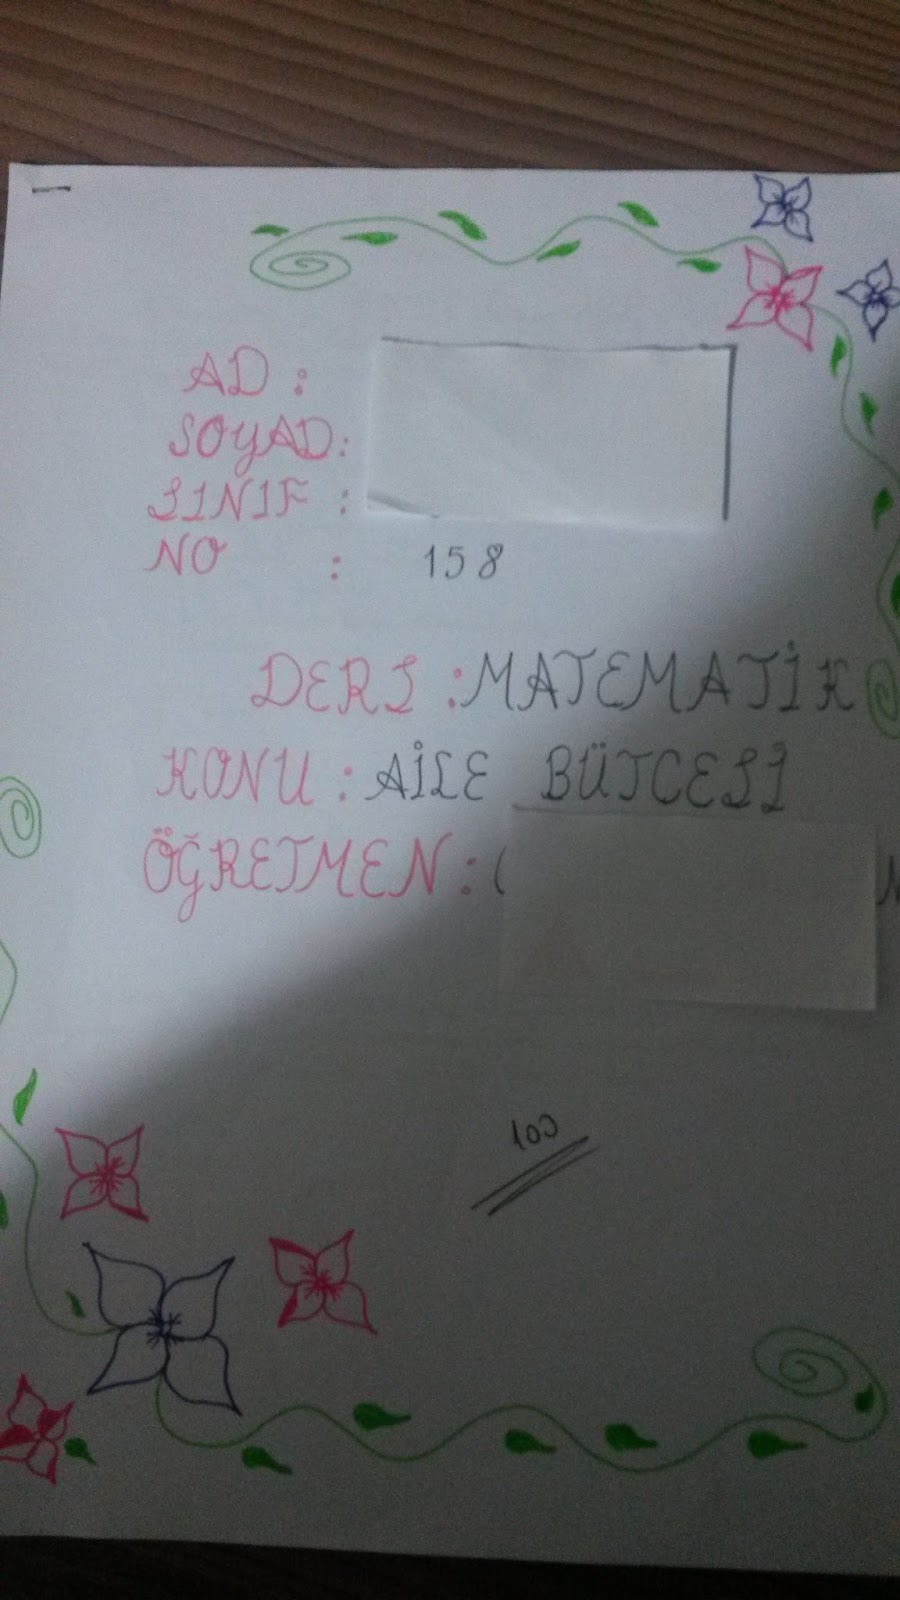 AD :
SOYAD:
SINIF :
NO : 158
DERS :MATEMATİK
KONU : AİLE BÜTCESİ
ÖĞRETMEN : (
100